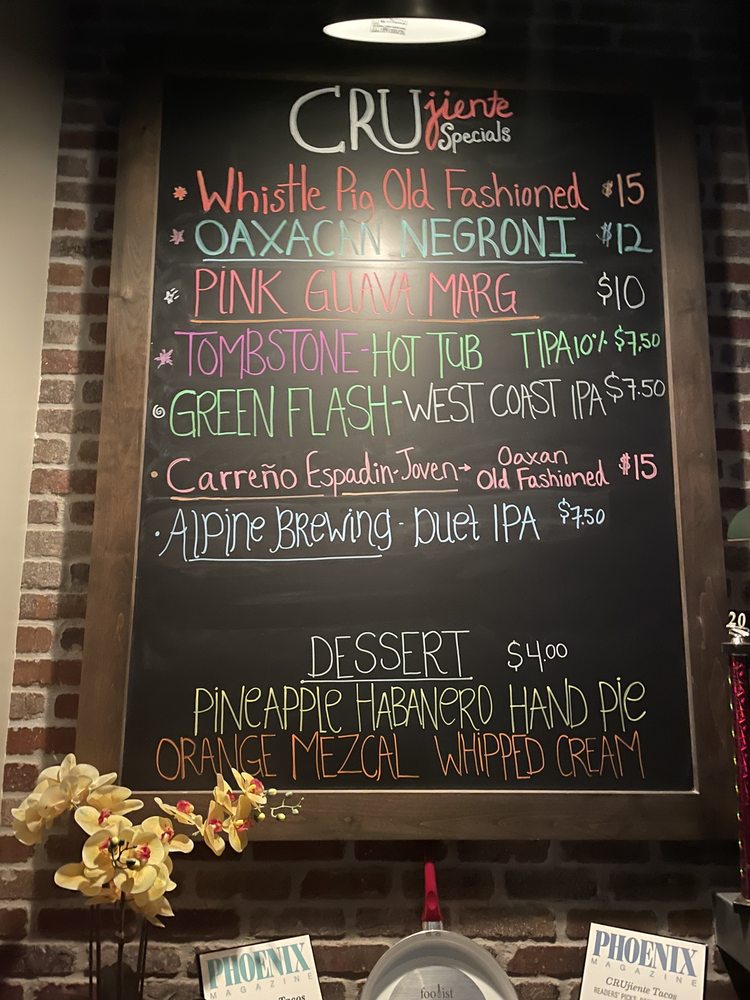 CRUjiente
Specials
Whistle Pig Old Fashioned $15
OAXACAN NEGRONI $12
PINK GUAVA MARG $10
TOMBSTONE-HOT TUB TIPA 10% $7.50
GREEN FLASH-WEST COAST IPA $7.50
Carreño Espadin-Joven→ Oaxan Old Fashioned $15
Alpine Brewing - Duet IPA $7.50
DESSERT $4.00
PINEAPPLE HABANERO HAND PIE
ORANGE MEZCAL WHIPPED CREAM
20
PHOENIX
MAGAZINE
Tacos
foodist
PHOENIX
MAGAZINE
CRUjiente Tacos